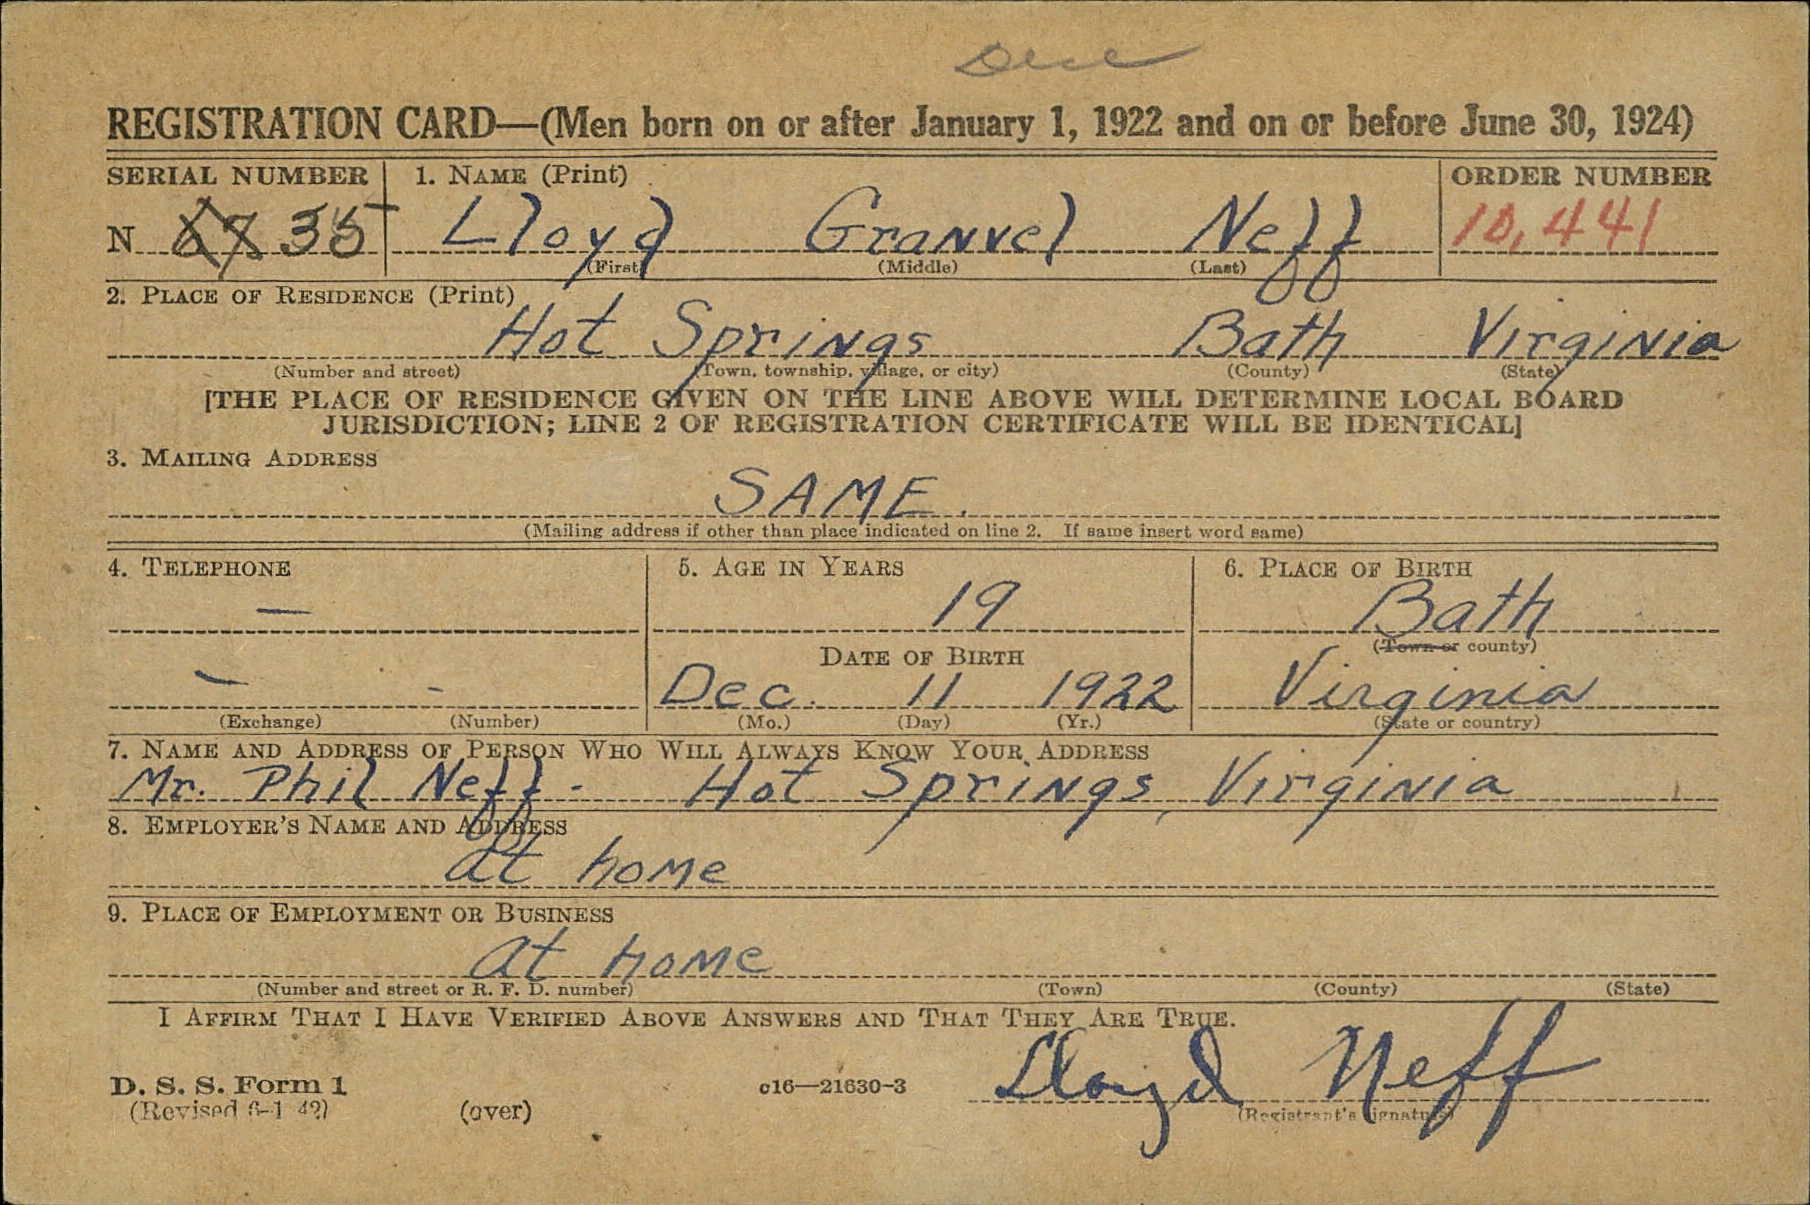 REGISTRATION CARD—(Men born on or after January 1, 1922 and on or before June 30, 1924)
SERIAL NUMBER 1. NAME (Print) ORDER NUMBER
N 35 Lloyd Granvel Neff 10,441
(First) (Middle) (Last)
2. PLACE OF RESIDENCE (Print)
Hot Springs Bath Virginia
(Number and street) (Town, township, village, or city) (County) (State)
[THE PLACE OF RESIDENCE GIVEN ON THE LINE ABOVE WILL DETERMINE LOCAL BOARD
JURISDICTION; LINE 2 OF REGISTRATION CERTIFICATE WILL BE IDENTICAL]
3. MAILING ADDRESS
SAME.
(Mailing address if other than place indicated on line 2. If same insert word same)
4. TELEPHONE 5. AGE IN YEARS 6. PLACE OF BIRTH
— 19 Bath
(Town or county)
DATE OF BIRTH
— - Dec. 11 1922 Virginia
(Exchange) (Number) (Mo.) (Day) (Yr.) (State or country)
7. NAME AND ADDRESS OF PERSON WHO WILL ALWAYS KNOW YOUR ADDRESS
Mr. Phil Neff - Hot Springs, Virginia
8. EMPLOYER'S NAME AND ADDRESS
at home
9. PLACE OF EMPLOYMENT OR BUSINESS
at home
(Number and street or R. F. D. number) (Town) (County) (State)
I AFFIRM THAT I HAVE VERIFIED ABOVE ANSWERS AND THAT THEY ARE TRUE.
Lloyd Neff
D. S. S. Form 1 c16—21630-3
(Revised 6-1-42) (over) (Registrant's signature)